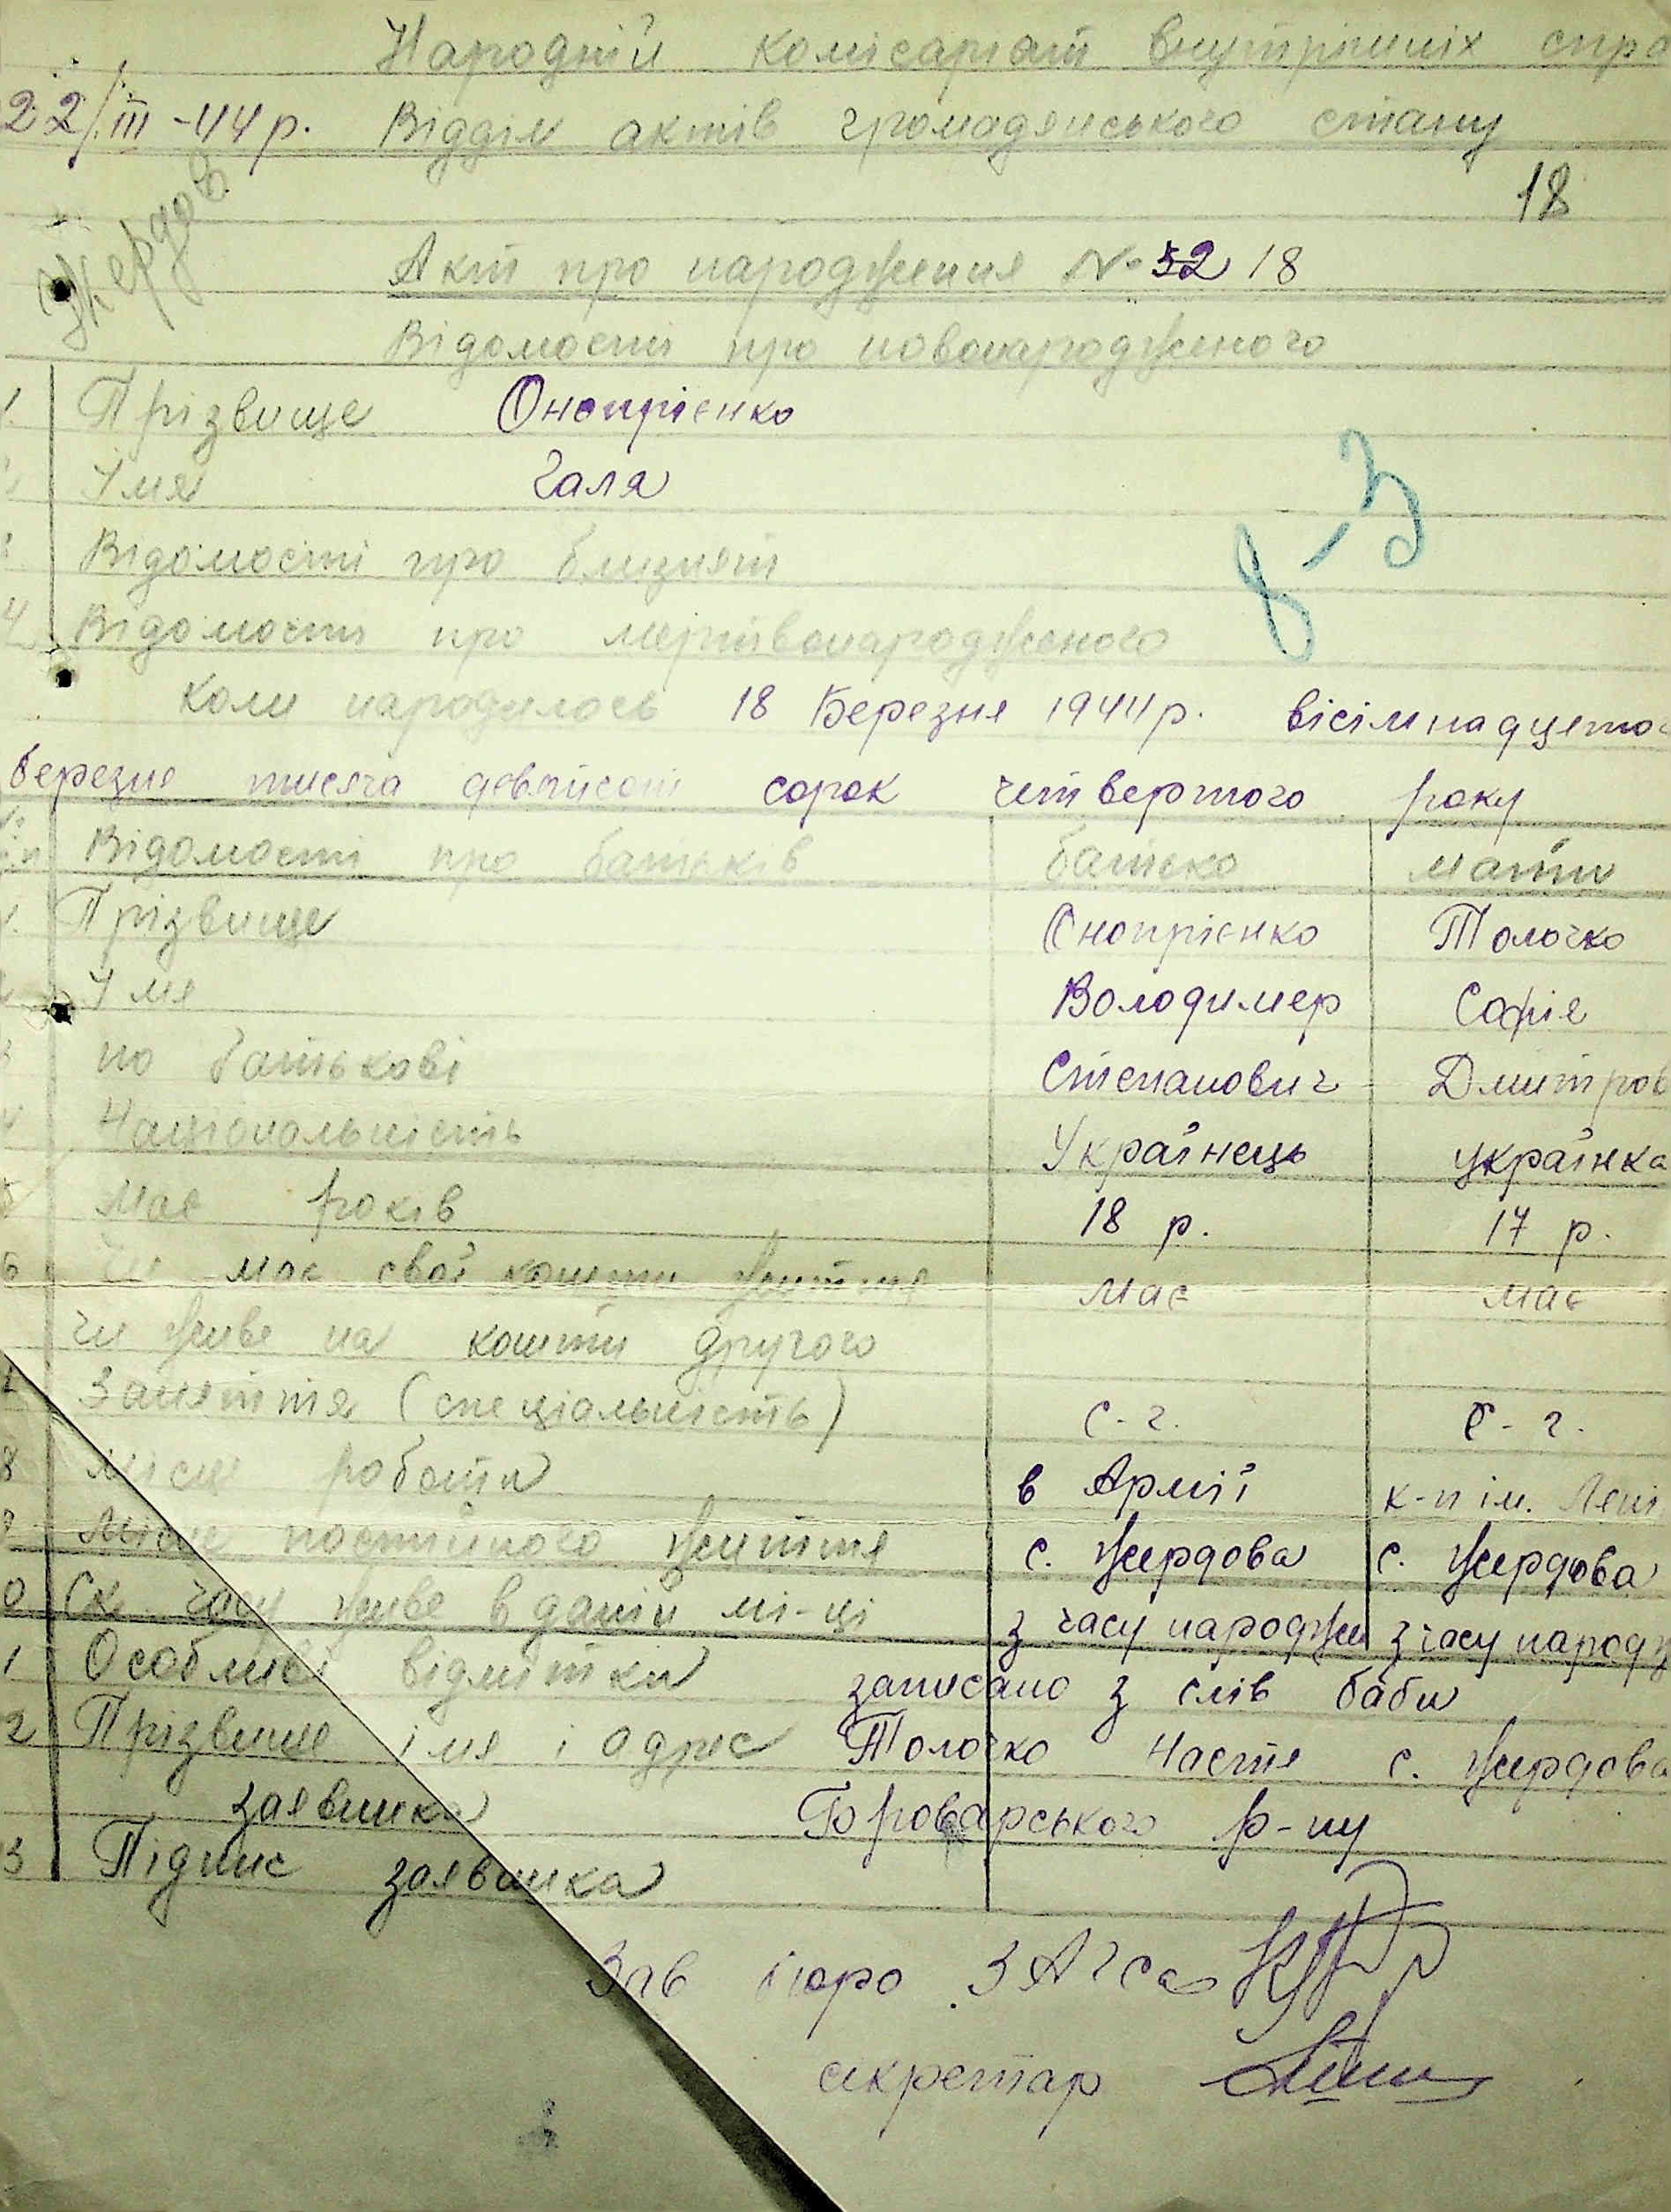 Народній комісаріат внутрішніх спра
22/III-44 р. Відділ актів громадянського стану
Жердов
18
Акт про народження № 52 18
Відомості про новонародженого
1. Прізвище Онопрієнко
Імя Галя
Відомості про близнят
8-3
4 Відомості про мертвонародженого
коли народилось 18 Березня 1944 р. вісімнадцято
березня тисяча девятсот сорок четвертого року
Відомості про батьків батько мати
1. Прізвище Онопрієнко Толочко
2 Імя Володимер Софія
3 по батькові Степанович Дмитров
4 Національність Українець українка
5 Має років 18 р. 17 р.
6 Чи має свої кошти життя має має
чи живе на кошти другого
Заняття (спеціальність) с-г. с-г.
8 місце роботи в Армії к-п ім. Лені
9 Місце постійного життя с. Жердова с. Жердова
0 Ск. часу живе в даній мі-ці з часу народжен з часу народж
1 Особливі відмітки записано з слів баби
2 Прізвище імя і адрес Толочко Настя с. Жердова
заявника Броварського р-ну
3 Підпис заявника
Зав бюро ЗАГСа
секретар